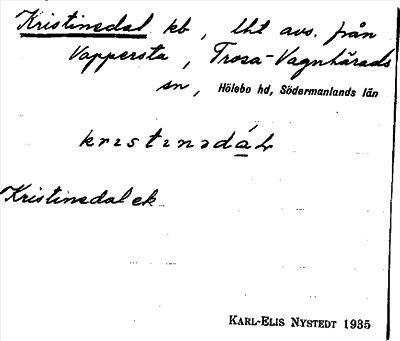 Kristinedal kb, lht avs. från
Vappersta, Trosa-Vagnhärads
sn, Hölebo hd, Södermanlands län
krɪstɪnədá̱L
Kristinedal ek
KARL-ELIS NYSTEDT 1935